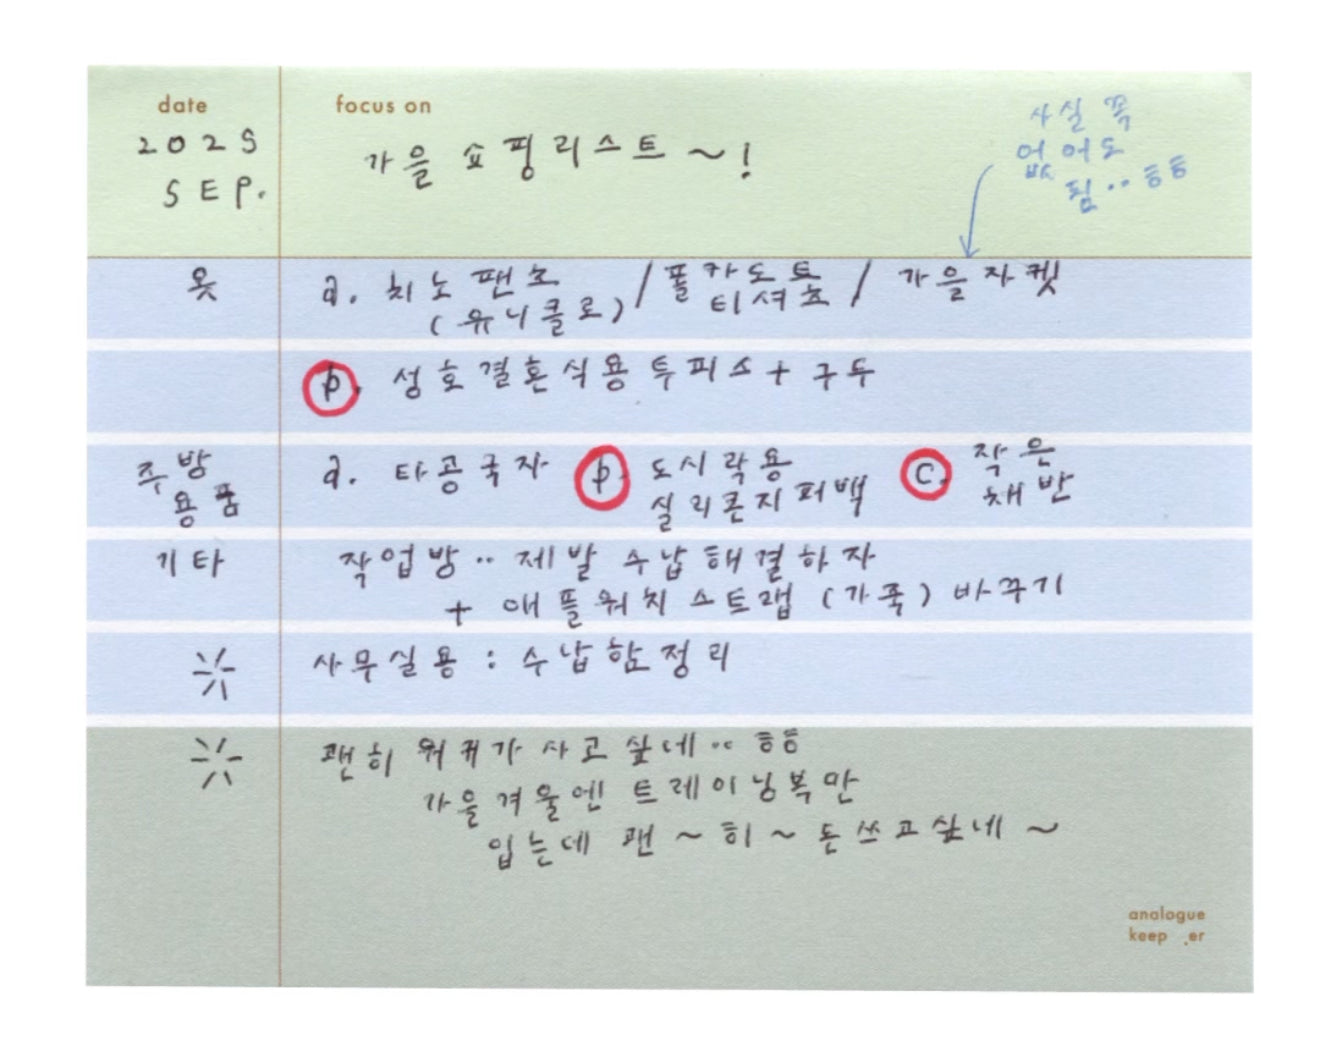 date
2025
SEP.
focus on
가을 쇼핑리스트 ~!
사실 꼭
없어도
됨.. ㅎㅎ
옷
a. 치노팬츠 / 폴카도트 / 가을자켓
(유니클로) 티셔츠
b. 성호결혼식용 투피스 + 구두
주방
용품
a. 타공국자 b. 도시락용 c. 작은
실리콘지퍼백 채반
기타
작업방.. 제발 수납해결하자
+ 애플워치 스트랩 (가죽) 바꾸기
사무실용 : 수납함정리
괜히 뭐뭐가 사고 싶네.. ㅎㅎ
가을겨울엔 트레이닝복만
입는데 괜~히~ 돈쓰고싶네~
analogue
keep .er